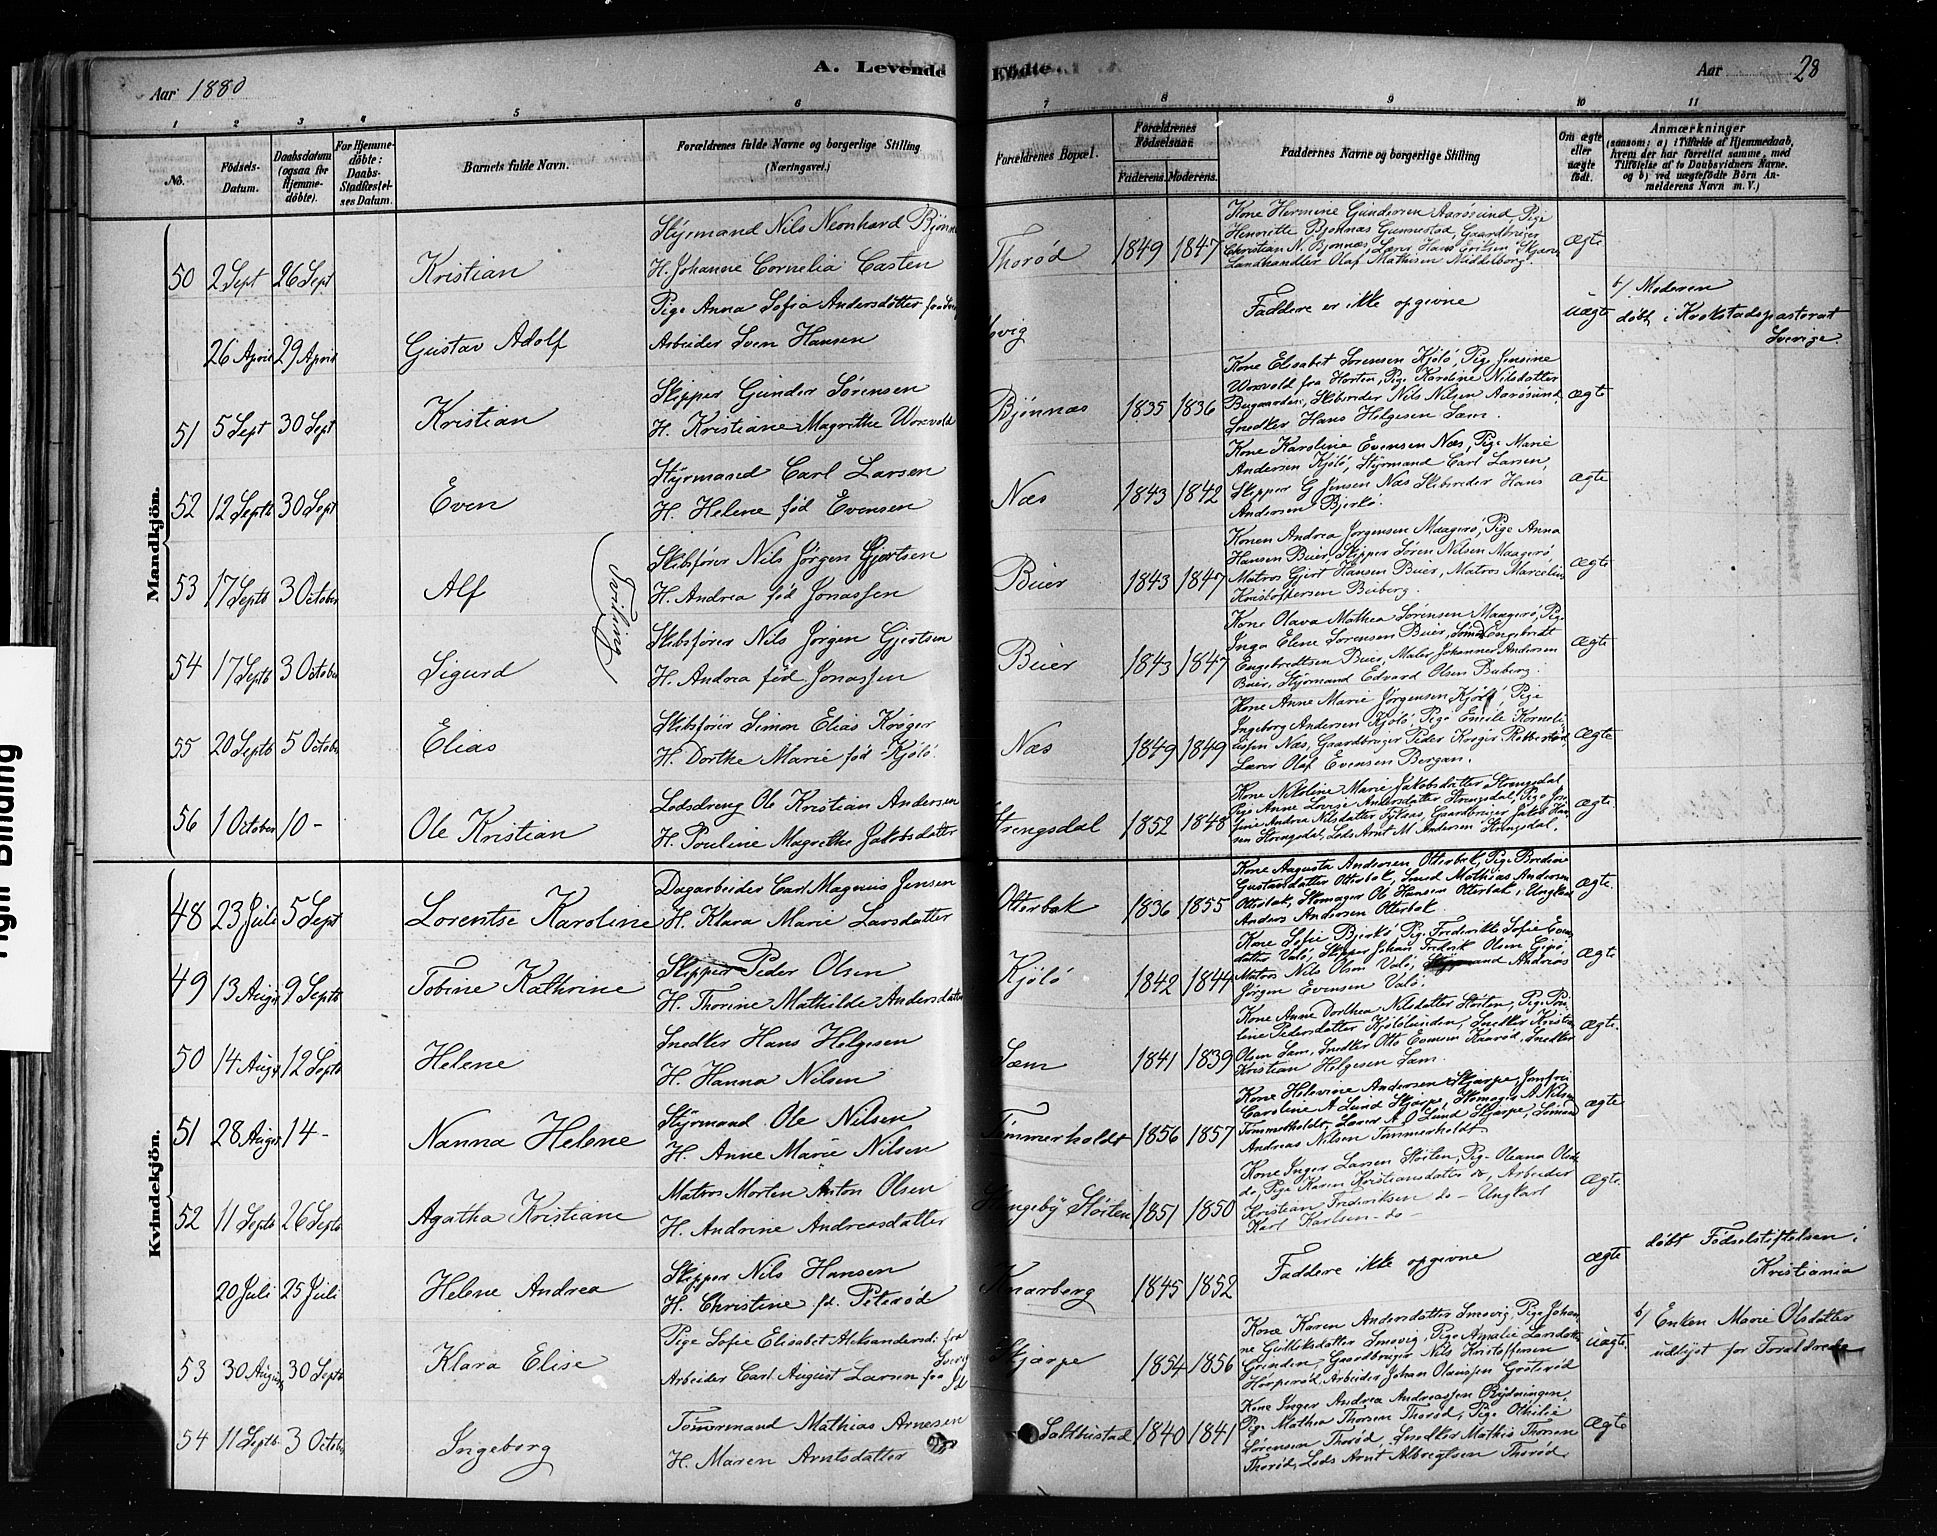 Aar 1880
A. Levende Födte.
Aar 28
1 2 3 4 5 6 7 8 9 10 11
No.
Födsels-Datum.
Daabsdatum (ogsaa for Hjemme-döbte).
For Hjemme-döbte: Daabs-Stadfæstel-ses Datum.
Barnets fulde Navn.
Forældrenes fulde Navne og borgerlige Stilling (Næringsvei.)
Forældrenes Bopæl.
Forældrenes Födselsaar.
Faderens. Moderens.
Faddernes Navne og borgerlige Stilling
Om ægte eller uægte födt.
Anmærkninger
(saasom: a) i Tilfælde af Hjemmedaab, hvem der har forrettet samme, med Tilföielse af to Daabsvidners Navne. og b) ved uægtefödte Börn An-melderens Navn m. V.)
Mandkjön.
50 2 Sept 26 Sept Kristian
Styrmand Nils Neonhard
H. Johanne Cornelia Casten
Thorød 1849 1847
Kone Hermine Gundersen Aarøsund, Pige
Henriette Bjønnas Gunnestad, Gaardbruger
Christian N. Bjønnæs, Lærer Hans Eriksen
Landhandler Olaf Mathisen Middelborg.
ægte
26 April 29 April Gustav Adolf
Pige Anna Sofia Andersdatter
Arbeider Sven Hansen
Faddere er ikke opgivne
uægte
b/ Moderen
døbt i Krokstadspastorat
Sverige
51 5 Sept 30 Sept Kristian
Skipper Gunder Sørensen
H. Kristiane Magrethe
Bjønnæs 1835 1836
Kone Elisabet Sørensen Kjölö, Pige Jensine
fra Horten, Pige Karoline Nilsdatter
Skibsreder Nils Nilsen Aarøsund,
Snedker Hans Helgesen Sæm.
ægte
52 12 Septb 30 Sept Even
Styrmand Carl Larsen
H. Helene fød Evensen
Næs 1843 1842
Kone Karoline Evensen Næs, Pige Marie
Andersen Kjölö, Styrmand Carl Larsen,
Skipper G Jensen Næs Skibsreder Hans
Andersen Bjerkö.
ægte
Tvilling
53 17 Septb 3 October Alf
Skibsfører Nils Jørgen Gjertsen
H. Andrea fød Jonassen
Buer 1843 1847
Konen Andrea Jørgensen Maagerö, Pige Anna
Hansen Buer, Skipper Søren Nilsen Maagerö
Matros Gjert Hansen Buer, Matros
Kristoffersen Buberg.
ægte
54 17 Septb 3 October Sigurd
Skibsfører Nils Jørgen Gjertsen
H. Andrea fød Jonassen
Buer 1843 1847
Kone Olava Mathea Sørensen Maagerö, Pige
Inga Elene Sørensen Buer, Engebredt
Engebredtsen Buer, Maler Johannes Andersen
Buer, Styrmand Edvard Olsen Buberg.
ægte
55 20 Septb 5 October Elias
Skibsfører Simon Elias Krøger
H. Dorthe Marie fød Kjölö.
Næs 1849 1849
Kone Anne Marie Jørgensen Kjölö, Pige
Ingeborg Andersen Kjölö, Pige Emilie
Næs, Gaardbruger Peder Krøger
Lærer Olaf Evensen Bergan.
ægte
56 1 October 10 - Ole Kristian
Lodsdreng Ole Kristian Andersen
H. Pouline Magrethe Jakobsdatter
Strengsdal 1852 1848
Kone Nikoline Marie Jakobsdatter Strengsdal
Pige Anne Lovise Andersdatter Strengsdal, Pige Jose
fine Andrea Nilsdatter Gaardbruger Jakob Han
sen Strengsdal, Lods Arnt M. Andersen Strengsdal.
ægte.
Kvindekjön.
48 23 Juli 5 Sept Lorentse Karoline
Dagarbeider Carl Magnus Jensen
H. Klara Marie Larsdatter
Otterbæk 1836 1855
Kone Augusta Andersen Otterbæk, Pige
Gustavsdatter Otterbæk, Smed Mathias Andersen
Otterbæk, Skomager Ole Hansen Otterbæk, Ungkarl
Anders Andersen Otterbæk
ægte.
49 13 Augst 9 Septb Tobine Kathrine
Skipper Peder Olsen
H. Thorine Mathilde Andersdatter
Kjölö 1842 1844
Kone Sofie Bjerkö Pige Fredrikke Sofie
datter Valö, Skipper Johan Fredrik Olsen
Matros Nils Olsen Valö, Andreas
Jørgen Evensen Valö.
ægte
50 14 Augst 12 Septb Helene
Snedker Hans Helgesen
H. Hanna Nilsen
Sæm 1841 1839
Kone Anne Dorthea Nilsdatter Støiten, Pige
Pedersdatter Snedker Kristen
Olsen Sæm, Snedker Otto Evensen Kaarød, Snedker
Kristian Helgesen Sæm.
ægte.
51 28 Augst 14 - Nanna Helene
Styrmand Ole Nilsen
H. Anne Marie Nilsen
Tömmerholdt 1856 1857
Kone Andersen Skjærpe, Jomfru
Caroline A Lund Skjærpe, Skomager A Nilsen
Tømmerholdt, Lærer A O Lund Skjærpe,
Andreas Nilsen Tømmerholdt
ægte
52 11 Septb 26 Septb Agatha Kristiane
Matros Morten Anton Olsen
H. Andrine Andreasdatter
Støiten 1851 1850
Kone Inger Larsen Støiten, Pige Oleana
do, Pige Karen Kristiansdatter do, Arbeider
Kristian Frederiksen do - Ungkarl
Karl Karlsen - do -
ægte.
20 Juli 25 Juli Helene Andrea
Skipper Nils Hansen
H. Christine fd. Peterød
Knarberg 1845 1852
Faddere ikke opgivne
ægte
døbt Fødselstiftelsen i
Kristiania
53 30 Augst 30 Septb Klara Elise
Pige Sofie Elisabet Aleksandersd: fra
Sverig
Arbeider Carl August Larsen fra
Skjærpe 1854 1856
Kone Karen Andersdatter Smøvig, Pige Johan
ne Gulliksdatter Smøvig, Pige Amalie Larsdatter
Grinden, Gaardbruger Nils Kristoffersen
Arbeider Johan
uægte.
b/ Enken Marie Olsdatter
udlyst for Forældrede
54 11 Septb. 3 October Ingeborg
Tømmermand Mathias Arnesen
H. Maren Arntsdatter
Saltbustad 1840 1841
Kone Inger Andrea Andreassen Rydningen,
Pige Mathea Thorsen Thorød, Pige Othilie
Sørensen Thorød, Snedker Mathis Thorsen
Thorød, Lods Arnt Albregtsen Thorød
Ægte
Tight Binding